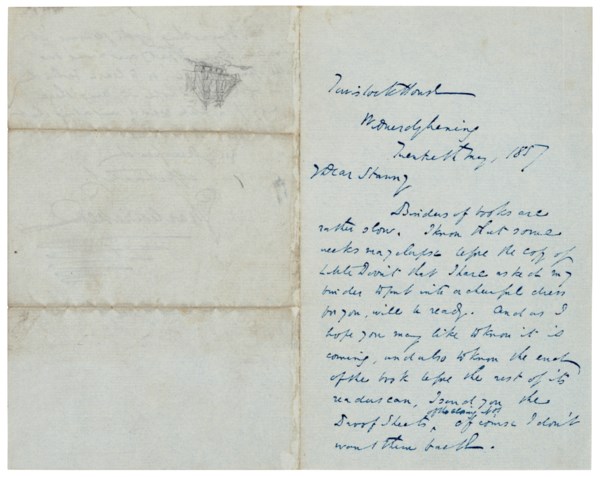 Tavistock House
Wednesday Evening
Twentieth May, 1857
My Dear Stanny
Binders of books are
rather slow. I know that some
weeks may elapse before the copy of
Little Dorrit that I have asked my
binder to put into a cheerful dress
for you, will be ready. And as I
hope you may like to know it is
coming, and also to know the end
of the book before the rest of its
readers can, I send you the
Proof Sheets of the closing N<sup>o</sup>. Of course I don't
want them back.